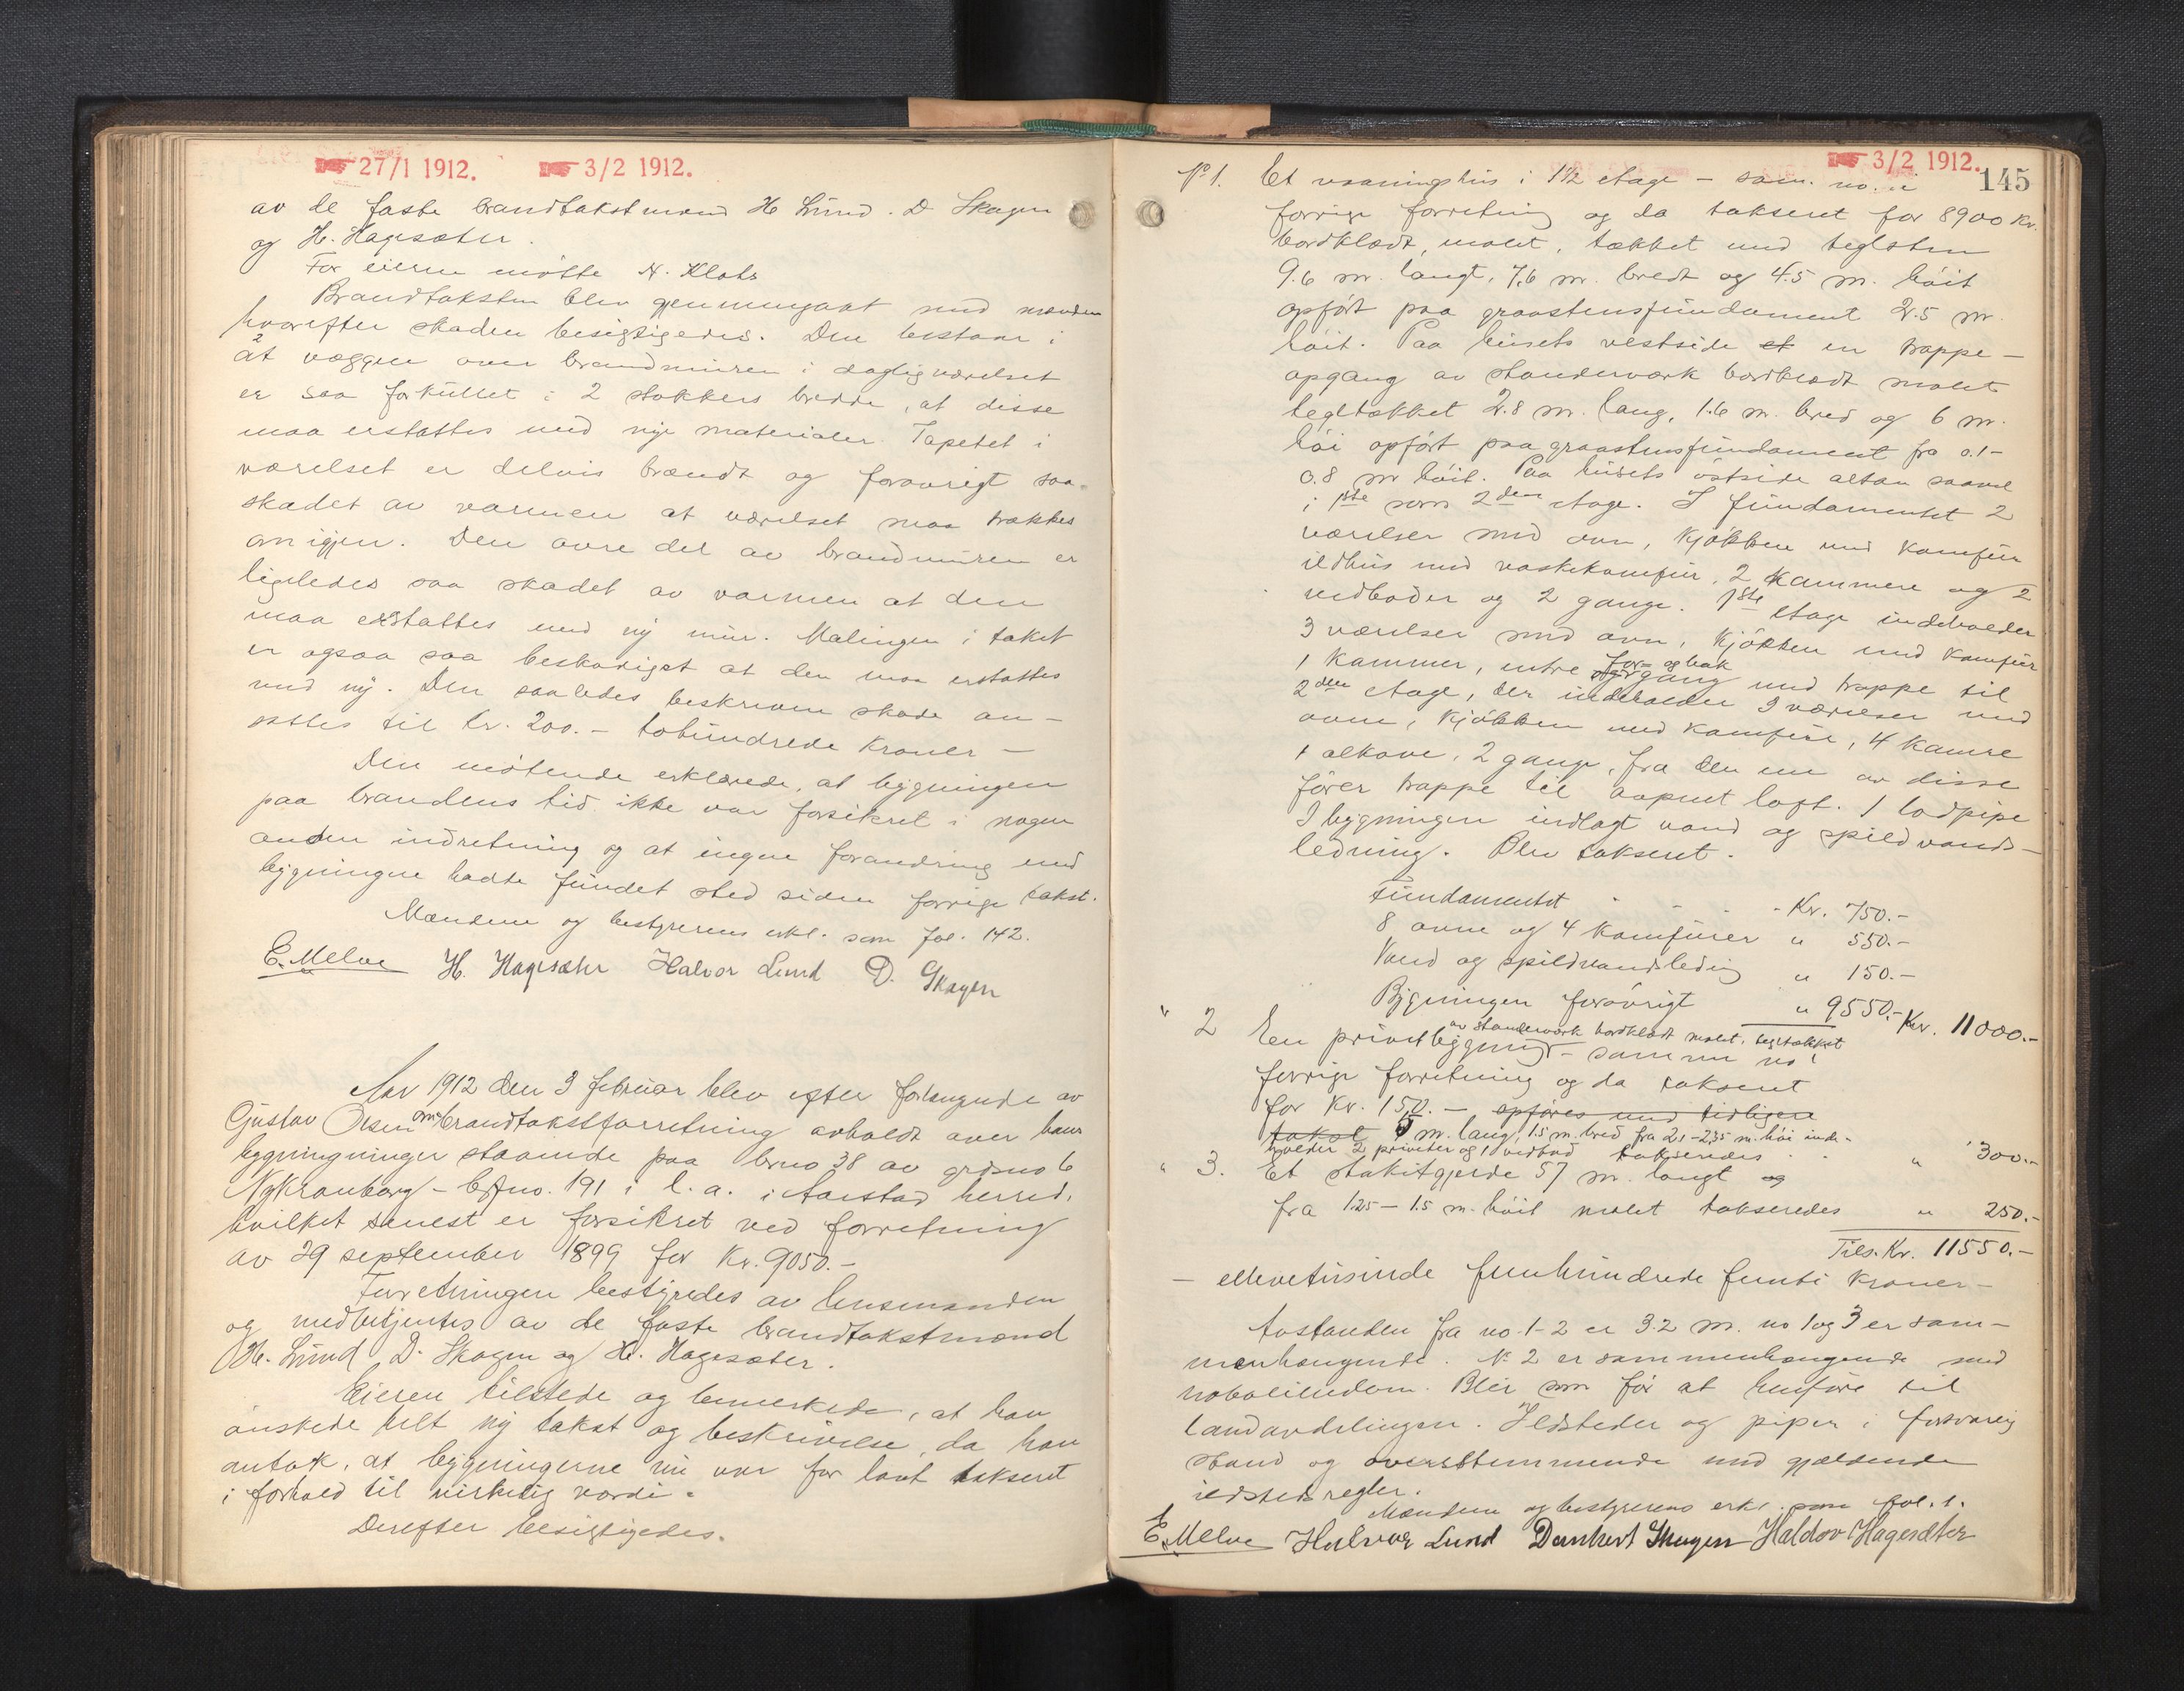 27/1 1912. 3/2 1912.
av de faste brandtakstmænd H Lund. D. Skagen
og H. Hagesæter.
For eieren møtte N. Klots
Brandtaksten blev gjennemgaat med mændene
hvorefter skaden besigtigedes. Den bestaar i
at væggen over brandmuren i dagligværelset
er saa forkullet i 2 stokkers bredde, at disse
maa erstattes med nye materialer. Tapetet i
værelset er delvis brændt og forøvrigt saa
skadet av varmen at værelset maa trækkes
om igjen. Den øvre del av brandmuren er
ligeledes saa skadet av varmen at den
maa erstattes med ny mur. Malingen i taket
er ogsaa saa beskadiget at den maa erstattes
med ny. Den saaledes beskrevne skade an-
sættes til kr. 200.- tohundrede kroner -
Den møtende erklærede, at bygningen
paa brandens tid ikke var forsikret i nogen
anden indretning og at ingen forandring med
bygningen hadte fundet sted siden forrige takst.
Mændene og bestyrerens erkl. som fol. 142.
E. Melve H. Hagesæter Halvor Lund D. Skagen
Aar 1912 den 3 februar blev efter forlangende av
Gustav Olsen ombrandtakstforretning avholdt over hans
bygningninger staaende paa brno 38 av grdsno 6
Nykronborg - Exno. 191 i l. a. i Aarstad herred,
hvilket senest er forsikret ved forretning
av 29 september 1899 for Kr. 9050.-
Forretningen bestyredes av lensmanden
og medbetjentes av de faste brandtakstmænd
H. Lund D. Skagen og H. Hagesæter.
Eieren tilstede og bemerkede, at han
ønskede helt ny takst og beskrivelse, da han
antok, at bygningerne nu var for lavt takseret
i forhold til virkelig værdi.
Derefter besigtigedes.
3/2 1912.
145
No 1. Et vaaningshus i 1½ etage - sam. no. i
forrige forretning og da takseret for 8900 Kr.
bordklædt, malet, tækket med teglsten
9.6 m. langt, 7.6 m. bredt og 4.5 m. høit
opført paa graastensfundament 2.5 m.
høit. Paa husets vestside et en trappe-
opgang av standerværk bordklædt malet
tegltækket 2.8 m. lang, 1.6 m. bred og 6 m.
høi opført paa graastensfundament fra 0.1-
0.8 m høit. Paa husets østside altan saavel
i 1ste som 2den etage. I fundamentet 2
værelser med ovn, kjøkken med komfur
ildhus med vaskekomfur, 2 kammere og 2
vedboder og 2 gange. 1ste etage indeholder
3 værelser med ovn, kjøkken med komfur
1 kammer, entre for- og bak gang med trappe til
2den etage, der indeholder 3 værelser med
ovne, kjøkken med komfur, 4 kamre
1 alkove, 2 gange, fra den ene av disse
fører trappe til aapent loft. 1 lodpipe
I bygningen indlagt vand og spildvands-
ledning. Blev takseret.
Fundamentet - - - - Kr. 750.-
8 ovne og 4 komfurer " 550.-
Vand og spildvandsledning " 150.-
Bygningen forøvrigt " 9550.- Kr. 11000.-
" 2 En privetbygning av standerværk bordklædt malet, tegltækket - samme no i
forrige forretning og da takseret
for Kr. 150.- opføres med tidligere
takst 5 m. lang, 1.5 m. bred fra 2.1-2.35 m. høi inde-
holder 2 priveter og 1 vedbod takseredes " 300.-
" 3. Et stakitgjerde 57 m. langt og
fra 1.25 - 1.5 m. høit malet takseredes " 250.-
Tils. Kr. 11550.-
- ellevetusinde femhundrede femti kroner -
Avstanden fra no. 1-2 er 3.2 m. no 1 og 3 er sam-
menhængende. No 2 er sammenhængende med
naboeiendom. Blir som før at henføre til
landavdelingen. Ildsteder og piper i forsvarlig
stand og overensstemmende med gjældende
ildstedsregler.
Mændene og bestyrerens erkl. som fol. 1.
E. Melve Halvor Lund Dankert Skagen Haldor Hagesæter